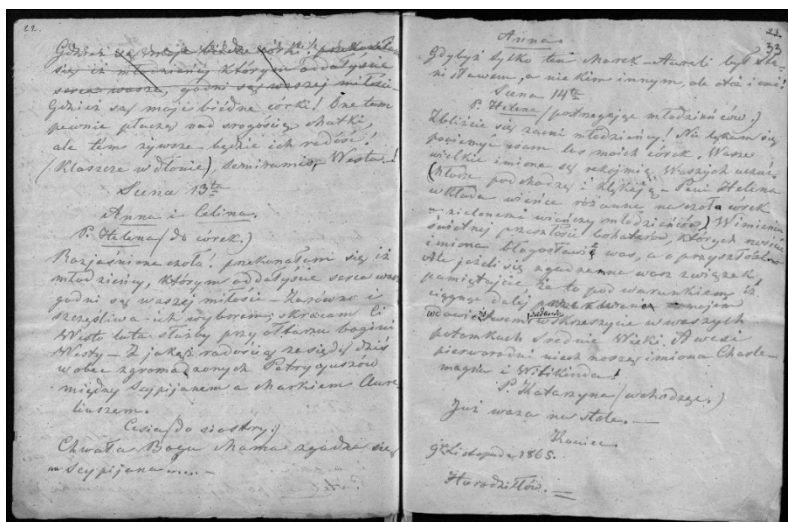 22.
Gdzież są moje biédne córki!
się iż młodzieńcy którym oddałyście
serca wasze, godni są waszej miłości.
Gdzież są moje biédne córki! One tam
pewnie płaczą nad srogością Matki,
ale tem żywsze będzie ich radość!
(Klaszcze w dłonie), Semiramis, Westa!
Scena 13ta
Anna i Celina.
P. Helena (do córek.)
Rozjaśnione czoła! przekonałam się iż
młodzieńcy, którym oddałyście serca wasze
godni są waszej miłości – Zarówno i
szczęśliwa ich wyborem, skracam Ci
Westo lata służby przy ołtarzu bogini
Westy – Z jakąż radością zasiędę dziś
wobec zgromadzonych Patrycyuszów
między Scypijanem a Markiem Aure-
liuszem.
Cesia (do siostry.)
Chwała Bogu Mama zgadza się
na Scypijana.....–
23.
33
Anna.
Gdybyż tylko ten Marek-Aureli był Sta-
nisławem, a nie kim innym, ale otóż i oni!
Scena 14ta
P. Helena (postrzegając młodzieńców.)
Zbliżcie się zacni młodzieńcy! Nie lękam się
powierzyć wam los moich córek. Wasze
wielkie imiona są rękojmią Waszych uczuć
(którzy podchodzą i klękają – Pani Helena
wkłada wieńce różanne na czoła córek
a zielonemi wieńczy młodzieńców) W imieniu
świetnej przeszłości bohaterów, których nosicie
imiona błogosławię was, a o przyszłości
Ale jeżeli się zgadzam na wasz związek,
pamiętajcie że to pod warunkiem iż
ciągnąc dalej
wskrzesicie w waszych
potomkach średnie Wieki. A wasi
pierworodni niech noszą imiona Charle-
magna i Witikinda!
P. Katarzyna (wchodząc.)
Już waza na stole. –
Koniec.
9go Listopada 1865.
Horodziłłów.